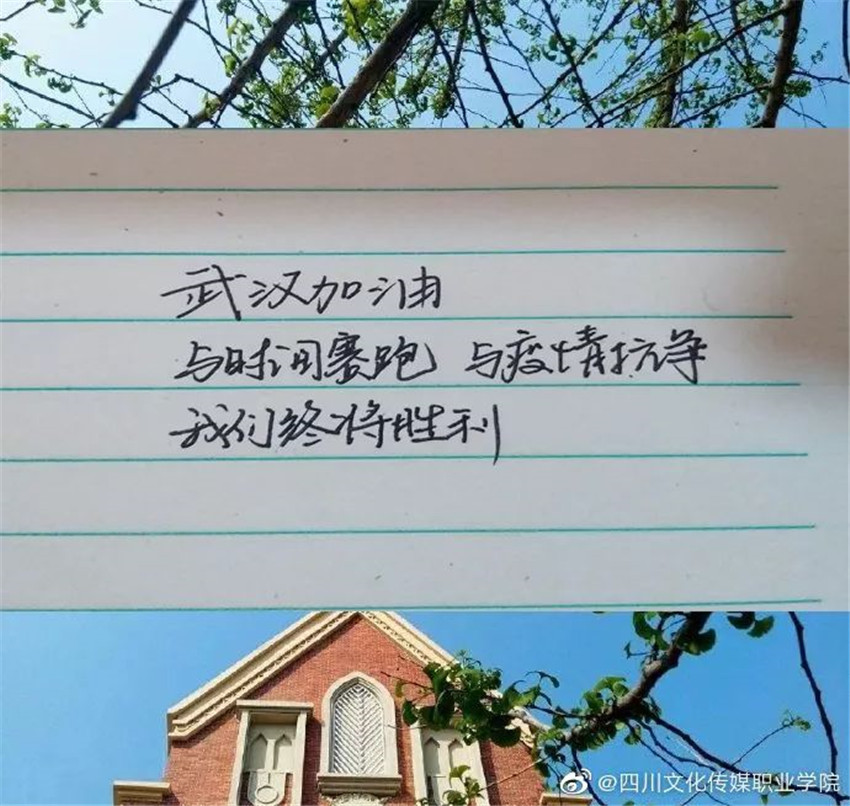 武汉加油
与时间赛跑 与疫情抗争
我们终将胜利
@四川文化传媒职业学院